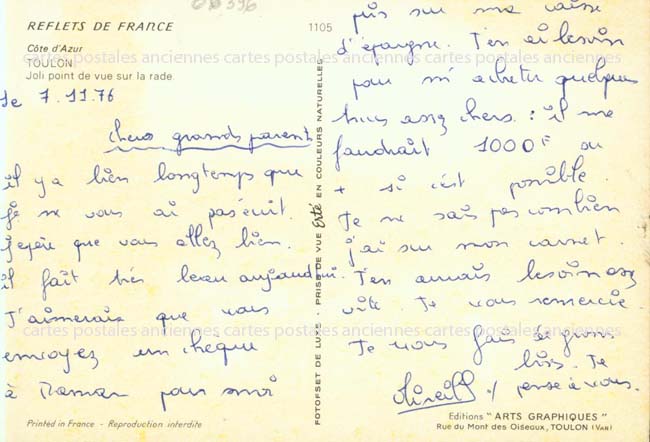 REFLETS DE FRANCE
1105
Côte d'Azur
TOULON
Joli point de vue sur la rade
le 7.11.76
chers grands parents
il y a bien longtemps que
je ne vous ai pas écrit.
J'espère que vous allez bien.
il fait très beau aujourd'hui.
J'aimerais que vous
envoyez un chèque
à Maman pour moi
Printed in France - Reproduction interdite
FOTOFSET DE LUXE - PRISE DE VUE Erté EN COULEURS NATURELLES
pris sur ma caisse
d'épargne. J'en ai besoin
pour m'acheter quelques
trucs assez chers : il me
faudrait 1000F ou
+ si c'est possible.
Je ne sais pas combien
j'ai sur mon carnet.
J'en aurais besoin assez
vite Je vous remercie
Je vous fais de gros
bis. Je
pense à vous.
Mireille
Editions "ARTS GRAPHIQUES"
Rue du Mont des Oiseaux, TOULON (VAR)
cartes postales anciennes cartes postales anciennes cartes postales anciennes
cartes postales anciennes cartes postales anciennes cartes postales anciennes